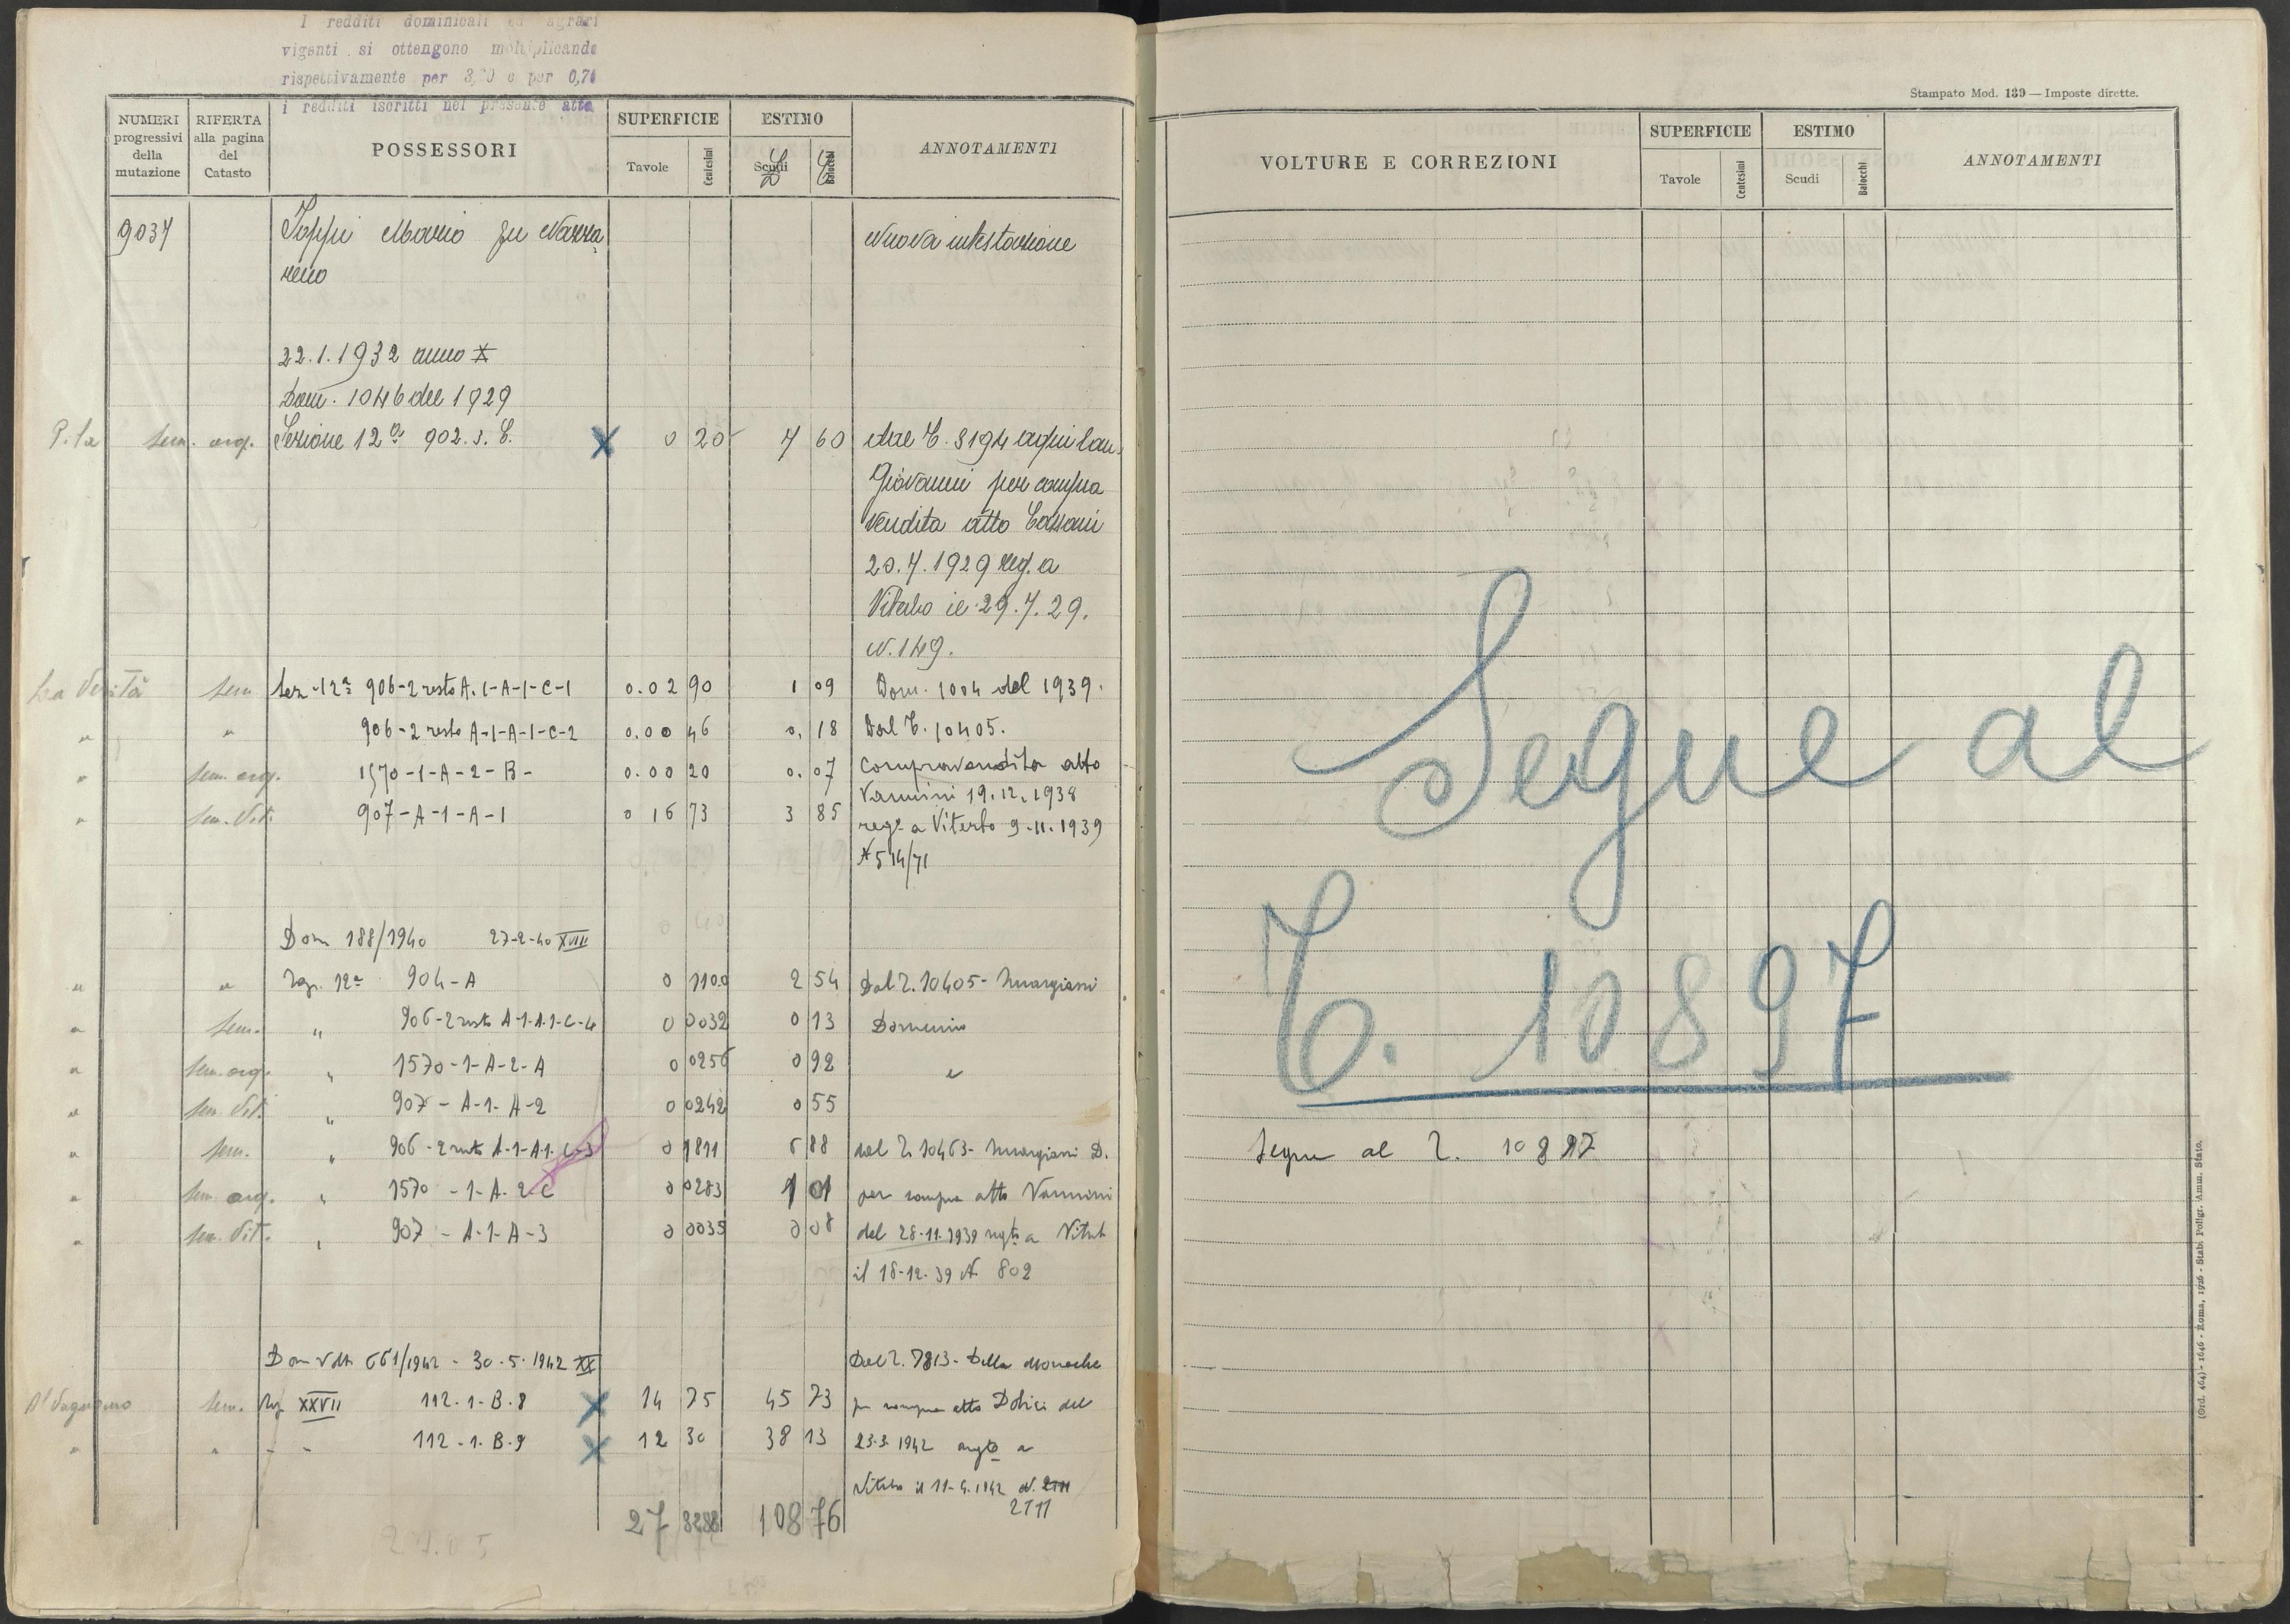 I redditi dominicali ed agrari
vigenti si ottengono moltiplicando
rispettivamente per 3,20 e per 0,70
i redditi iscritti nel presente atto
NUMERI progressivi della mutazione
RIFERTA alla pagina del Catasto
POSSESSORI
SUPERFICIE
Tavole Centesimi
ESTIMO
Scudi Baiocchi
ANNOTAMENTI
9037 Toppi Mario fu Nazza Nuova intestazione
reno
22.1.1932 anno X
Dom. 1046 del 1929
P.la sem. arg. Sezione 12ª 902.s.C. X 0 20 7 60 dal C. 8194
Giovanni per compra
vendita atto Cassani
20.7.1929 reg. a
Viterbo il 29.7.29.
N. 149.
La Verità sem Sez. 12ª 906-2 resto A-1-A-1-C-1 0.02 90 1 09 Dom. 1004 del 1939.
" " 906-2 resto A-1-A-1-C-2 0.00 46 0. 18 Dal C. 10405.
" sem. arg. 1570-1-A-2-B- 0.00 20 0. 07 Compravendita atto
Vannini 19.12.1938
" sem. Vit. 907-A-1-A-1 0 16 73 3 85
regº a Viterbo 9-11-1939
N 514/71
Dom 188/1940 27-2-40 XVIII
" " Sez. 12ª 904-A 0 1100 2 54 Dal C. 10405-
" sem. " 906-2 resto A-1-A-1-C-4 0 0032 0 13 Domenico
" sem. arg. " 1570-1-A-2-A 0 0256 0 92 e
" sem. Vit. " 907-A-1-A-2 0 0242 0 55
" sem. " 906-2 resto A-1-A-1-C-3 0 1811 6 88 dal C. 10463-
" sem. arg. " 1570-1-A-2-C 0 0283 1 01 per compra atto Vannini
" sem. Vit. " 907-A-1-A-3 0 0035 0 08 del 28-11-1939 regto a Viterb
il 18-12-39 N. 802
Dom Volt 661/1942 - 30.5.1942 XX Dal C. 7813- Delle Monache
sem. Sez XXVII 112-1-B-8 X 14 75 45 73 per compra atto Dolici del
" " " " 112-1-B-9 X 12 30 38 13 23-3-1942 regto a
Viterbo il 11-4-1942 N. 2111
2111
27 8288 108 76
27.05
Stampato Mod. 139 — Imposte dirette.
VOLTURE E CORREZIONI
SUPERFICIE
Tavole Centesimi
ESTIMO
Scudi Baiocchi
ANNOTAMENTI
Segue al
C. 10897
Segue al C. 10897
(Ord. 464) - 1646 - Roma, 1926 - Stab. Poligr. Amm. Stato.